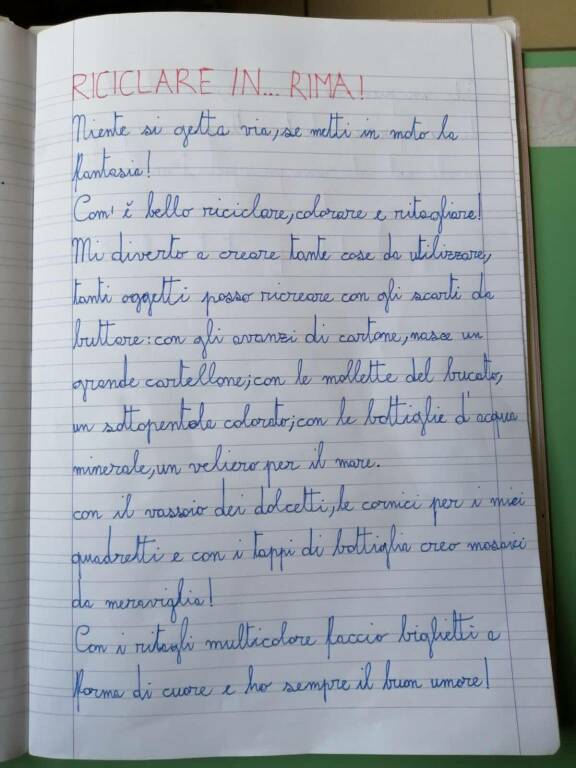 RICICLARE IN... RIMA!
Niente si getta via, se metti in moto la
fantasia!
Com'è bello riciclare, colorare e ritagliare!
Mi diverto a creare tante cose da utilizzare,
tanti oggetti posso ricreare con gli scarti da
buttare: con gli avanzi di cartone, nasce un
grande cartellone; con le mollette del bucato,
un sottopentola colorato; con le bottiglie d'acqua
minerale, un veliero per il mare.
con il vassoio dei dolcetti, le cornici per i miei
quadretti e con i tappi di bottiglia creo mosaici
da meraviglia!
Con i ritagli multicolore faccio biglietti a
forma di cuore e ho sempre il buon umore!